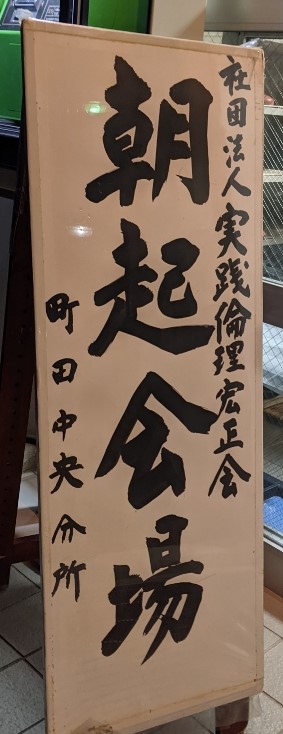 社団法人実践倫理宏正会
朝起会場
町田中央分所